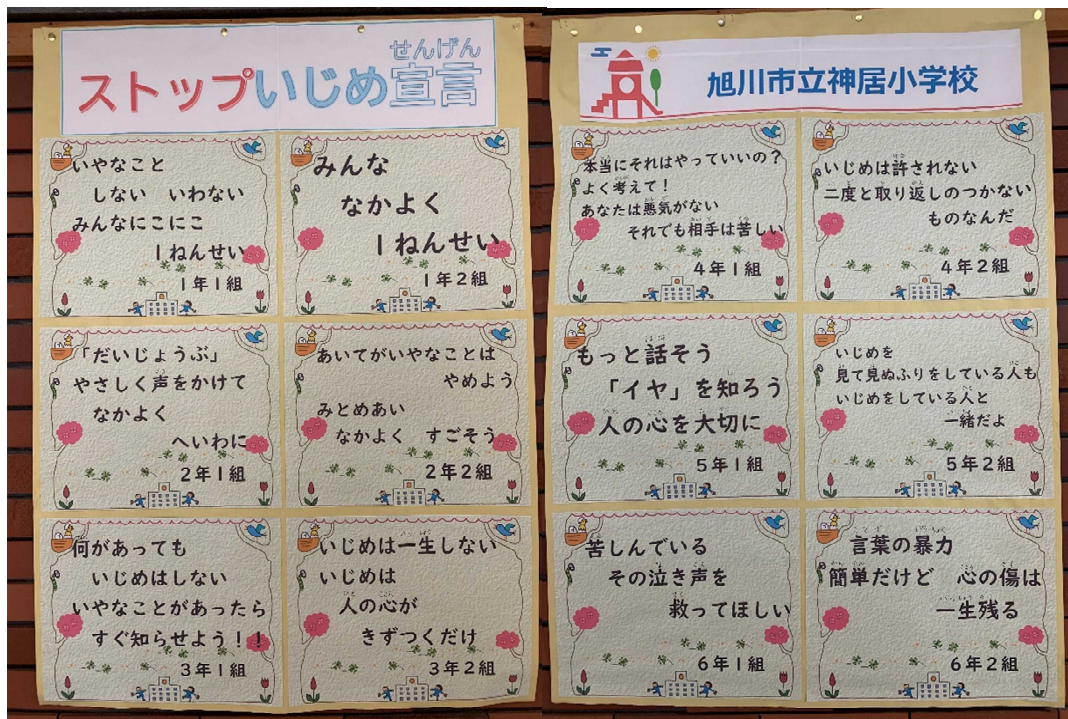 ストップいじめ宣言
せんげん
いやなこと
しない いわない
みんなにこにこ
1ねんせい
1年1組
みんな
なかよく
1ねんせい
1年2組
「だいじょうぶ」
やさしく声をかけて
なかよく
へいわに
2年1組
あいてがいやなことは
やめよう
みとめあい
なかよく すごそう
2年2組
何があっても
いじめはしない
いやなことがあったら
すぐ知らせよう!!
3年1組
いじめは一生しない
いじめは
人の心が
きずつくだけ
3年2組
旭川市立神居小学校
本当にそれはやっていいの?
よく考えて!
あなたは悪気がない
それでも相手は苦しい
4年1組
いじめは許されない
二度と取り返しのつかない
ものなんだ
4年2組
もっと話そう
「イヤ」を知ろう
人の心を大切に
5年1組
いじめを
見て見ぬふりをしている人も
いじめをしている人と
一緒だよ
5年2組
苦しんでいる
その泣き声を
救ってほしい
6年1組
言葉の暴力
簡単だけど 心の傷は
一生残る
6年2組